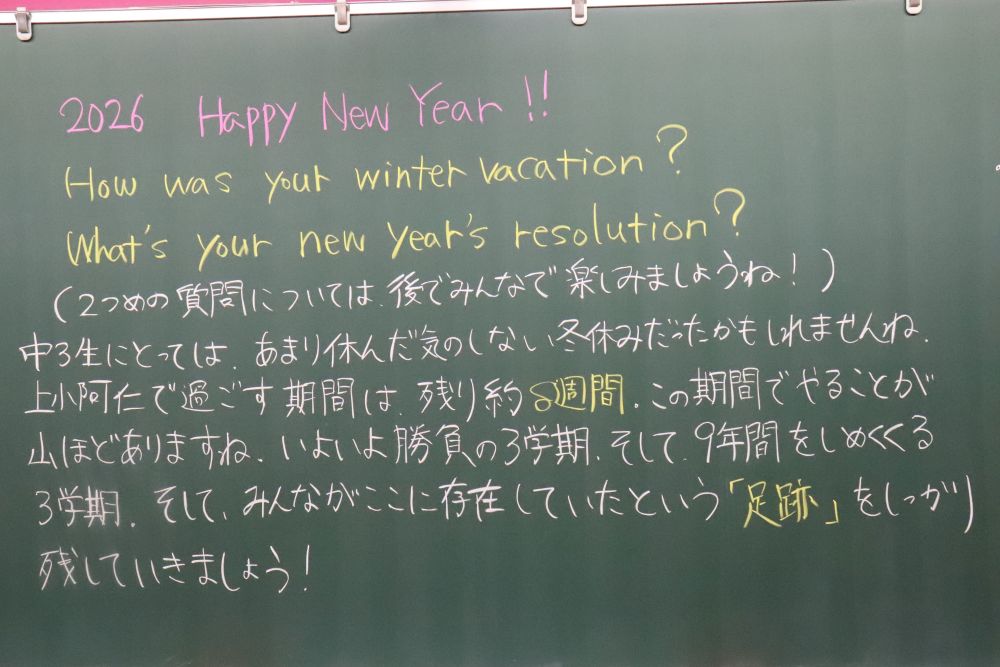 2026 Happy New Year!!
How was your winter vacation?
What's your new year's resolution?
(2つめの質問については、後でみんなで楽しみましょうね!)
中3生にとっては、あまり休んだ気のしない冬休みだったかもしれませんね.
上小阿仁で過ごす期間は、残り約8週間.この期間でやることが
山ほどありますね.いよいよ勝負の3学期.そして、9年間をしめくくる
3学期.そして、みんながここに存在していたという「足跡」をしっかり
残していきましょう!